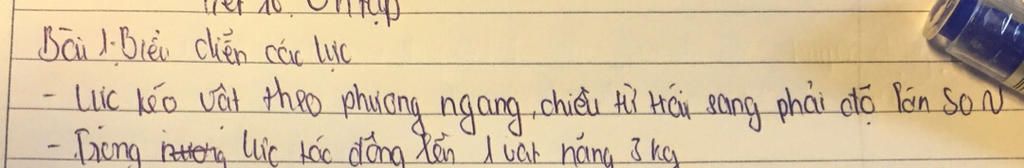 Tiết 10. Ôn tập
Bài 1. Biểu diễn các lực
- Lực kéo vật theo phương ngang, chiều từ trái sang phải độ lớn 50N
- Trọng lực tác động lên 1 vật nặng 3 kg